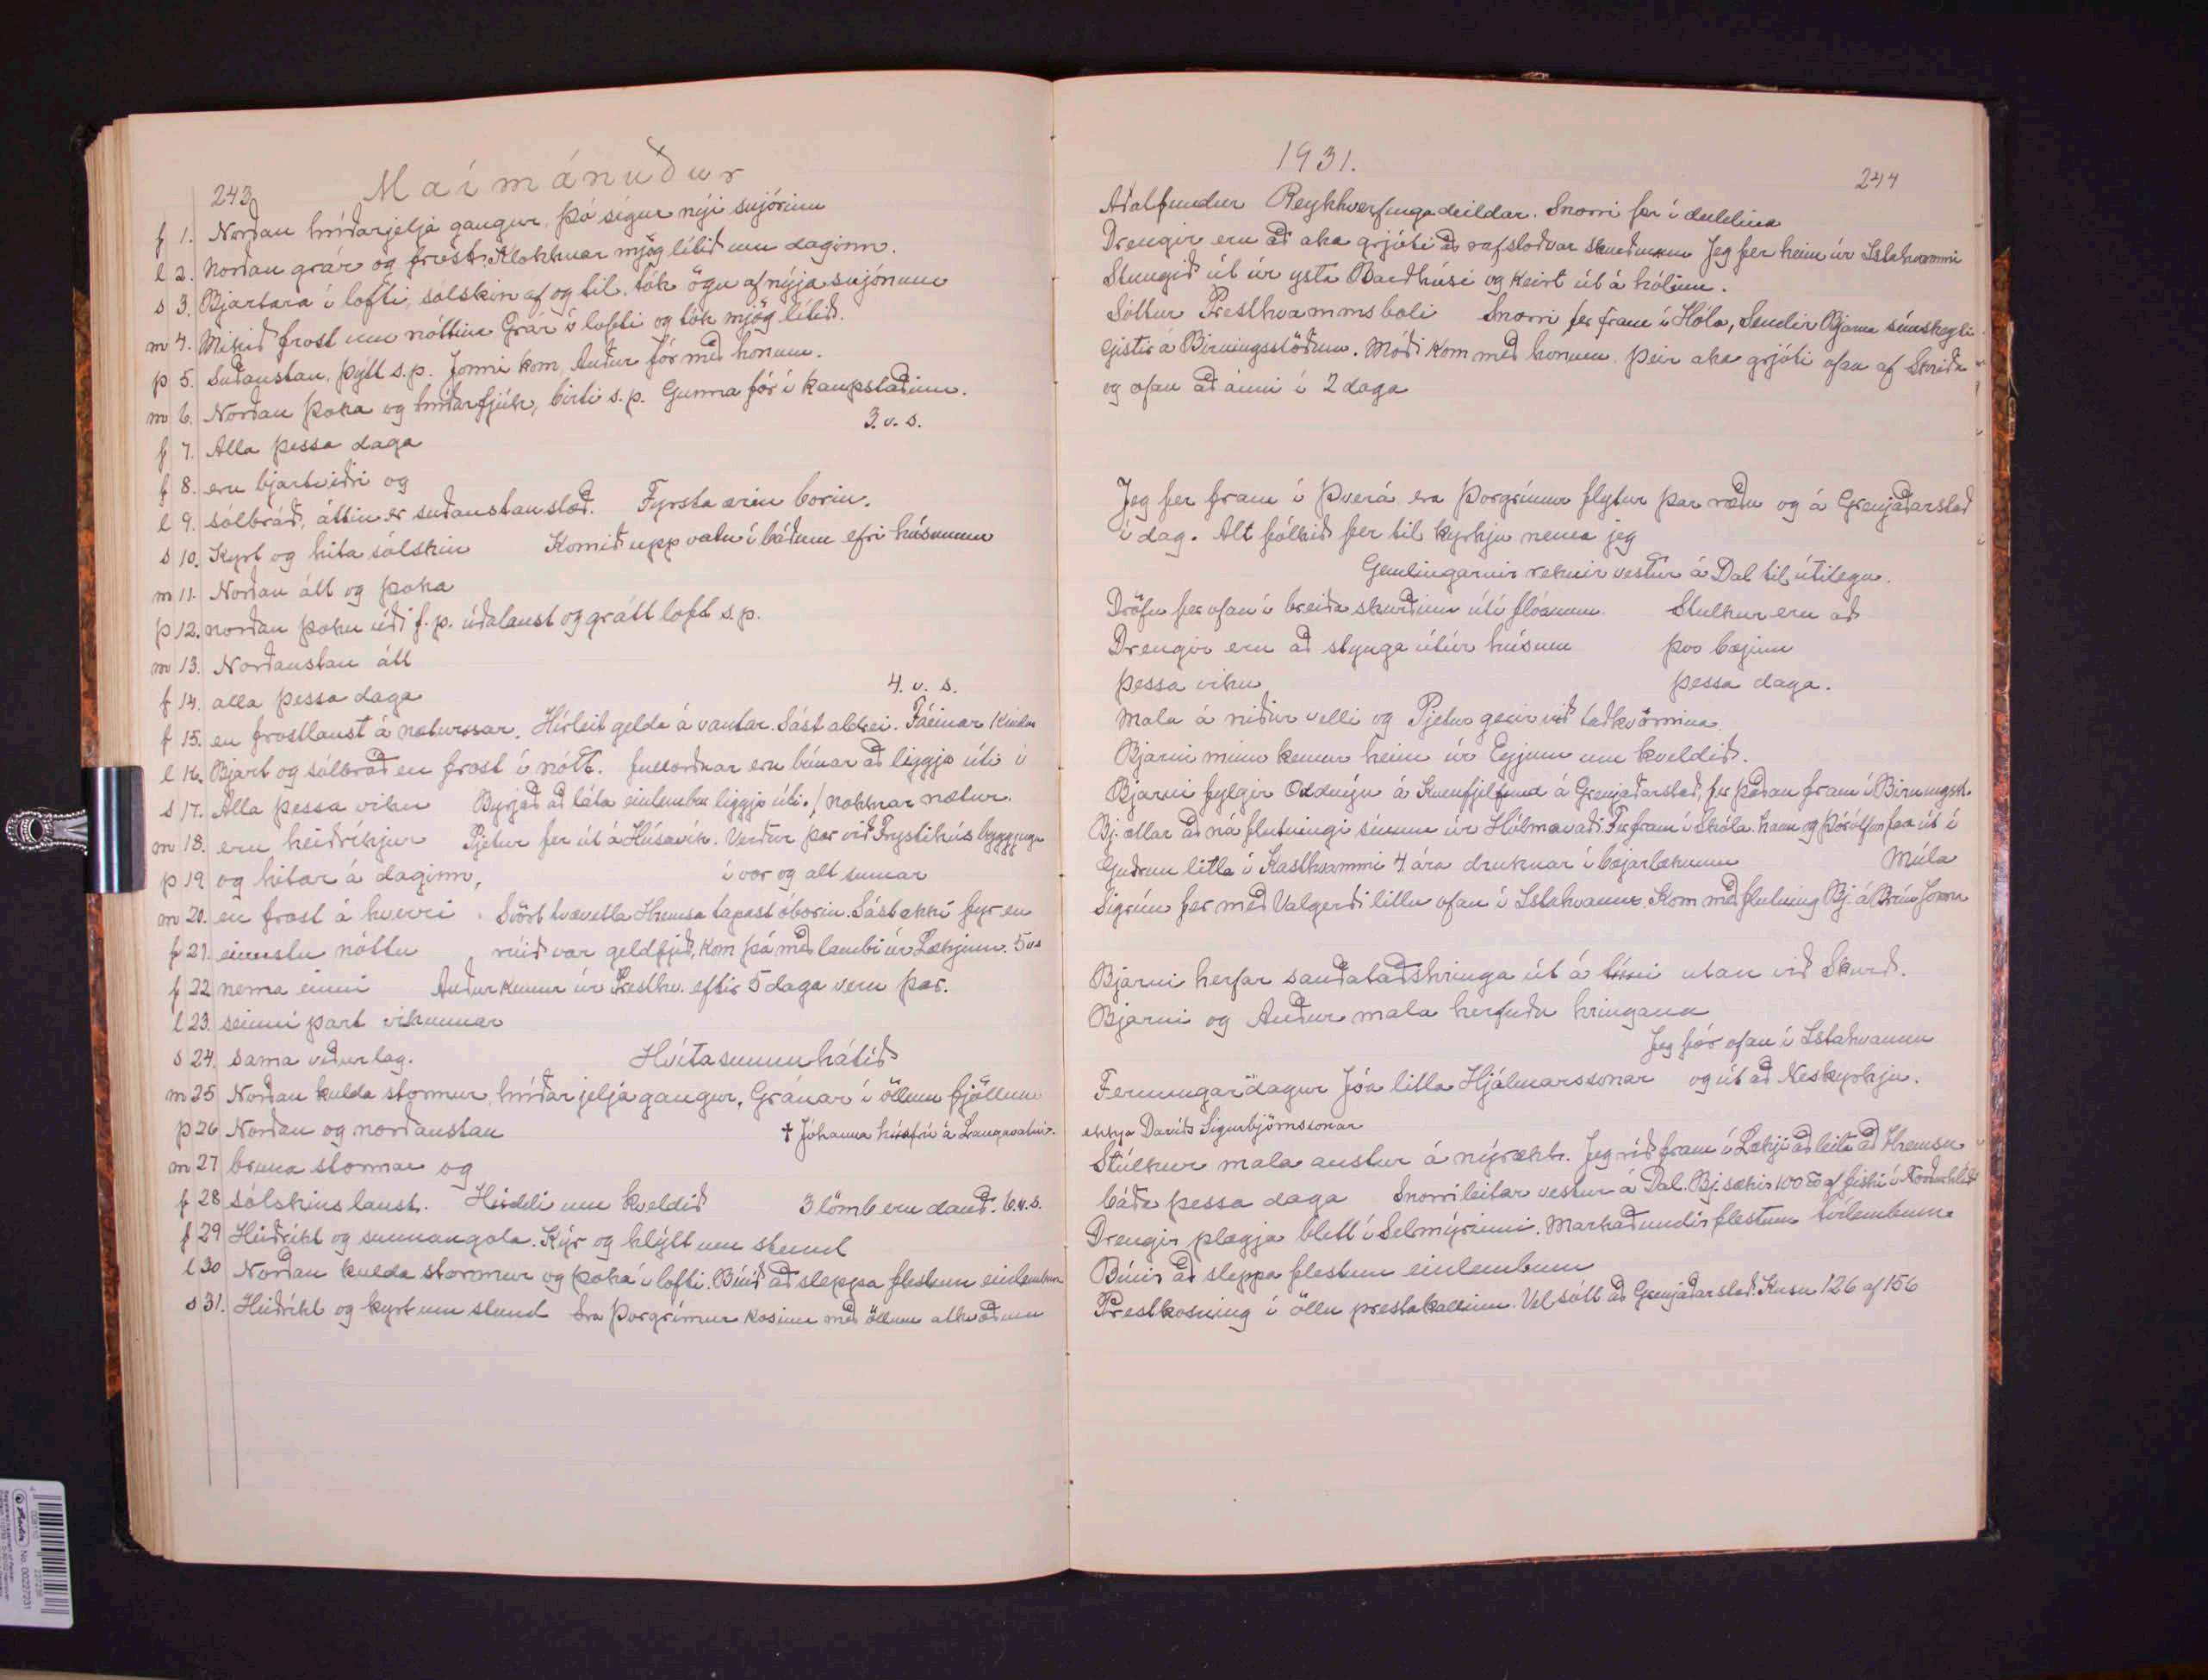 243 Maímánuður
f 1. Norðan hríðarjeljá gangur, þó sígur nýi snjórinn
l 2. Norðan grár og frost. Klökknar mjög lítið um daginn.
s 3. Bjartara í lofti, sólskin af og til, tók ögn af nýja snjónum
m 4. Mikið frost um nóttina Grár í lofti og tók mjög lítið.
þ 5. Suðaustan, þýtt s.p. Jonni kom, Auður fór með honum.
m 6. Norðan þoka og hríðarfjúk, birti s.p. Gunna fór í kaupstaðinn.
3. v. s.
f 7. Alla þessa daga
f 8. eru bjartviðri og
l 9. sólbráð, áttin er suðaustanstæð. Fyrsta ærin borin.
s 10. Kyrt og hita sólskin Komið upp vatn í báðum efri húsunum
m 11. Norðan átt og þoka
þ 12. norðan þoku úði f.p. úðalaust og grátt loft s.p.
m 13. Norðaustan átt
f 14. alla þessa daga 4. v. s.
f 15. en frostlaust á næturnar. Hírleit gelda á vantar. Sást aldrei. Fáeinar kindur
l 16. Bjart og sólbráð en frost í nótt. fullorðnar eru búnar að liggja úti í
s 17. Alla þessa viku Byrjað að láta einlembur liggja úti. / nokkrar nætur.
m 18. eru heiðríkjur Pjetur fer út á Húsavík. Verður þar við Frystihús byggingu
þ 19 og hitar á daginn, í vor og alt sumar
m 20. en frost á hverri Svört tvævetla Hremsa tapast óborin. Sást ekki fyr en
f 21. einustu nóttu rúið var geldfjeð, kom þá með lambi úr Lækjum. 5 v s
f 22 nema einni Auður kemur úr Presthv. eftir 5 daga veru þar.
l 23. seinni part vikunnar
s 24. sama veðurlag. Hvítasunnuhátíð
m 25 Norðan kulda stormur, hríðar jeljá gangur, Gránar í öllum fjöllum
þ 26 Norðan og norðaustan † Jóhanna húsfrú á Langavatni.
m 27 bruna stormar og
f 28 sólskins laust. Heiddi um kveldið 3 lömb eru dauð. 6. v. s.
f 29 Heiðríkt og sunnangola. Kýr og hlýtt um stund
l 30 Norðan kulda stormur og þoka í lofti. Búið að sleppa flestum einlembum
s 31. Heiðríkt og kyrt um stund Sra Þorgrímur kosinn með öllum atkvæðum
1931. 244
Aðalfundur Reykhverfingadeildar. Snorri fer í deildina
Drengir eru að aka grjóti að rafstöðvar skurðinum Jeg fer heim úr Ystahvammi
Stungið út úr ysta Barðhúsi og keirt út á hólinn.
Sóttur Presthvammsboli Snorri fer fram í Hóla, Sendir Bjarna
Gistir á Birningsstöðum. Móði kom með honum. Þeir aka grjóti ofan af Skriðu
og ofan að ánni í 2 daga
Jeg fer fram í Þverá sra Þorgrímur flytur þar ræðu og á Grenjaðarstað
í dag. Alt fólkið fer til kyrkju nema jeg
Gemlingarnir reknir vestur á Dal til útilegu.
Dröfn fer ofan í breiða skurðinn útí flóanum. Stulkur eru að
Drengir eru að stynga útúr húsum þvo bæjinn
þessa viku þessa daga.
Mala á niður velli og Pjetur gerir við taðkvörnina.
Bjarni minn kemur heim úr Eyjum um kveldið.
Bjarni fylgir Oddnýu á Kvenfjelfund á Grenjaðarstað, fer þaðan fram í Birningsst.
Bj. ætlar að ná flutningi sínum úr Hólmavaði. Fer fram í Skóla. hann og Þórólfur fara út í
Guðrun litla í Kasthvammi 4 ára druknar í bæjarlæknum Múla
Sigrún fer með Valgerði litlu ofan í Ystahvamm. Kom með flutning Bj. á Brún Jonna
Bjarni herfar sauðataðshringa út á túni utan við Skurð.
Bjarni og Auður mala herfuðu hringana
Jeg fór ofan í Ystahvamm
Fermingardagur Jóa litla Hjálmarssonar og út að Neskyrkju.
ekkja Davíðs Sigurbjörnssonar
Stúlkur mala austur á nýrækt. Jeg ríð fram í Lækji að leita að Hremsu
báða þessa daga Snorri leitar vestur á Dal. Bj. sækir 100 af fiski í Norðurhlíð
Drengir plægja blett í Selmýrinni. Markað undir flestum tvílembum.
Búið að sleppa flestum einlembum
Prestkosning í öllu prestakallinu. Vel sótt að Grenjaðarstað. Kusu 126 af 156